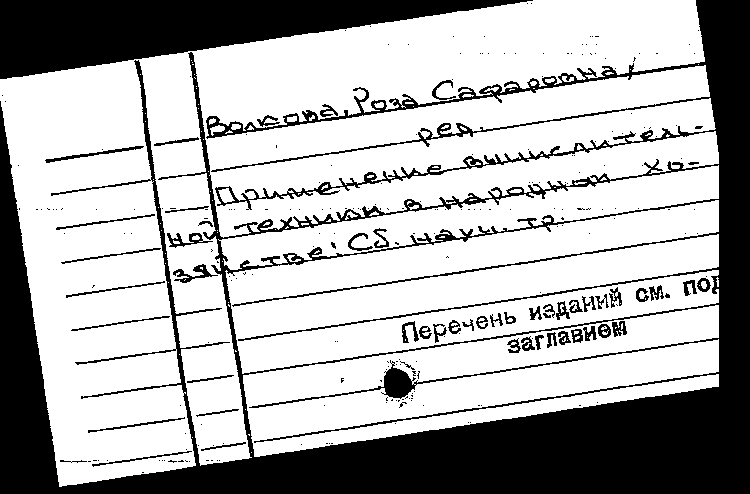 Волкова, Роза Сафаровна,
ред.
Применение вычислитель-
ной техники в народном хо-
зяйстве: Сб. научн. тр.
Перечень изданий см. под
заглавием